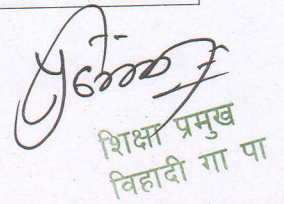 शिक्षा प्रमुख
विहादी गा पा